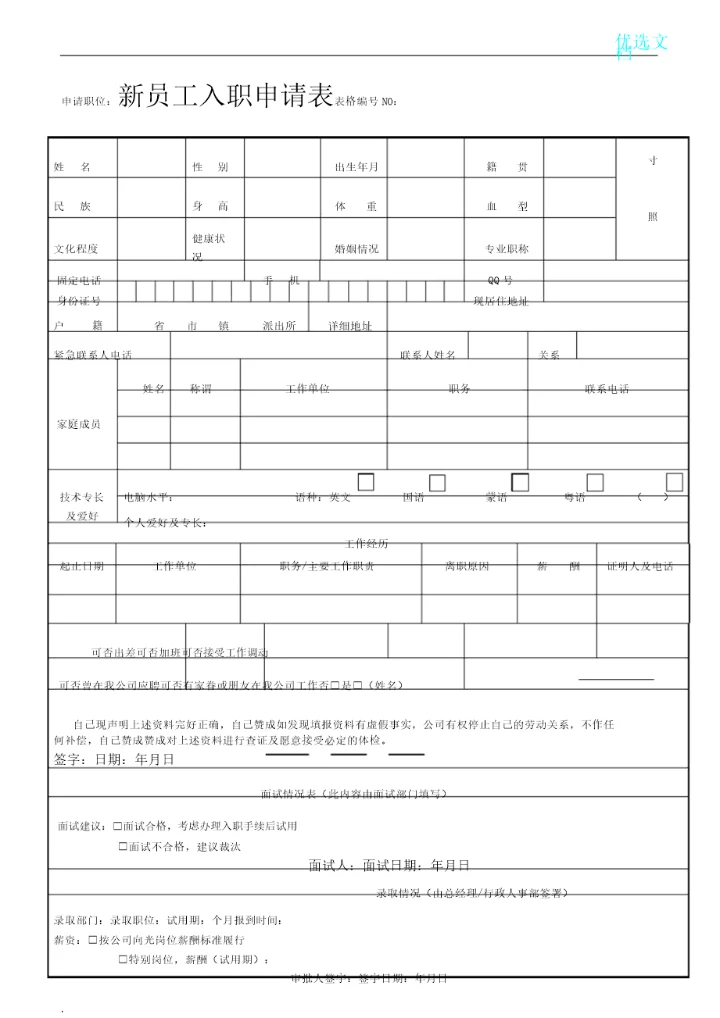 优选文
档
申请职位: 新员工入职申请表表格编号 NO:
姓 名 性 别 出生年月 籍 贯 寸
民 族 身 高 体 重 血 型 照
文化程度 健康状况 婚姻情况 专业职称
固定电话 手 机 QQ 号
身份证号 现居住地址
户 籍 省 市 镇 派出所 详细地址
紧急联系人电话 联系人姓名 关系
姓名 称谓 工作单位 职务 联系电话
家庭成员
技术专长 电脑水平: 语种:英文 □ 国语 □ 蒙语 □ 粤语 □ ( ) □
及爱好 个人爱好及专长:
工作经历
起止日期 工作单位 职务/主要工作职责 离职原因 薪 酬 证明人及电话
可否出差可否加班可否接受工作调动
可否曾在我公司应聘可否有家眷或朋友在我公司工作否□是□(姓名)
自己现声明上述资料完好正确,自己赞成如发现填报资料有虚假事实,公司有权停止自己的劳动关系,不作任
何补偿,自己赞成赞成对上述资料进行查证及愿意接受必定的体检。
签字:日期:年月日
面试情况表(此内容由面试部门填写)
面试建议:□面试合格,考虑办理入职手续后试用
□面试不合格,建议裁汰
面试人:面试日期:年月日
录取情况(由总经理/行政人事部签署)
录取部门:录取职位:试用期:个月报到时间:
薪资:□按公司向光岗位薪酬标准履行
□特别岗位,薪酬(试用期):
审批人签字:签字日期:年月日
.